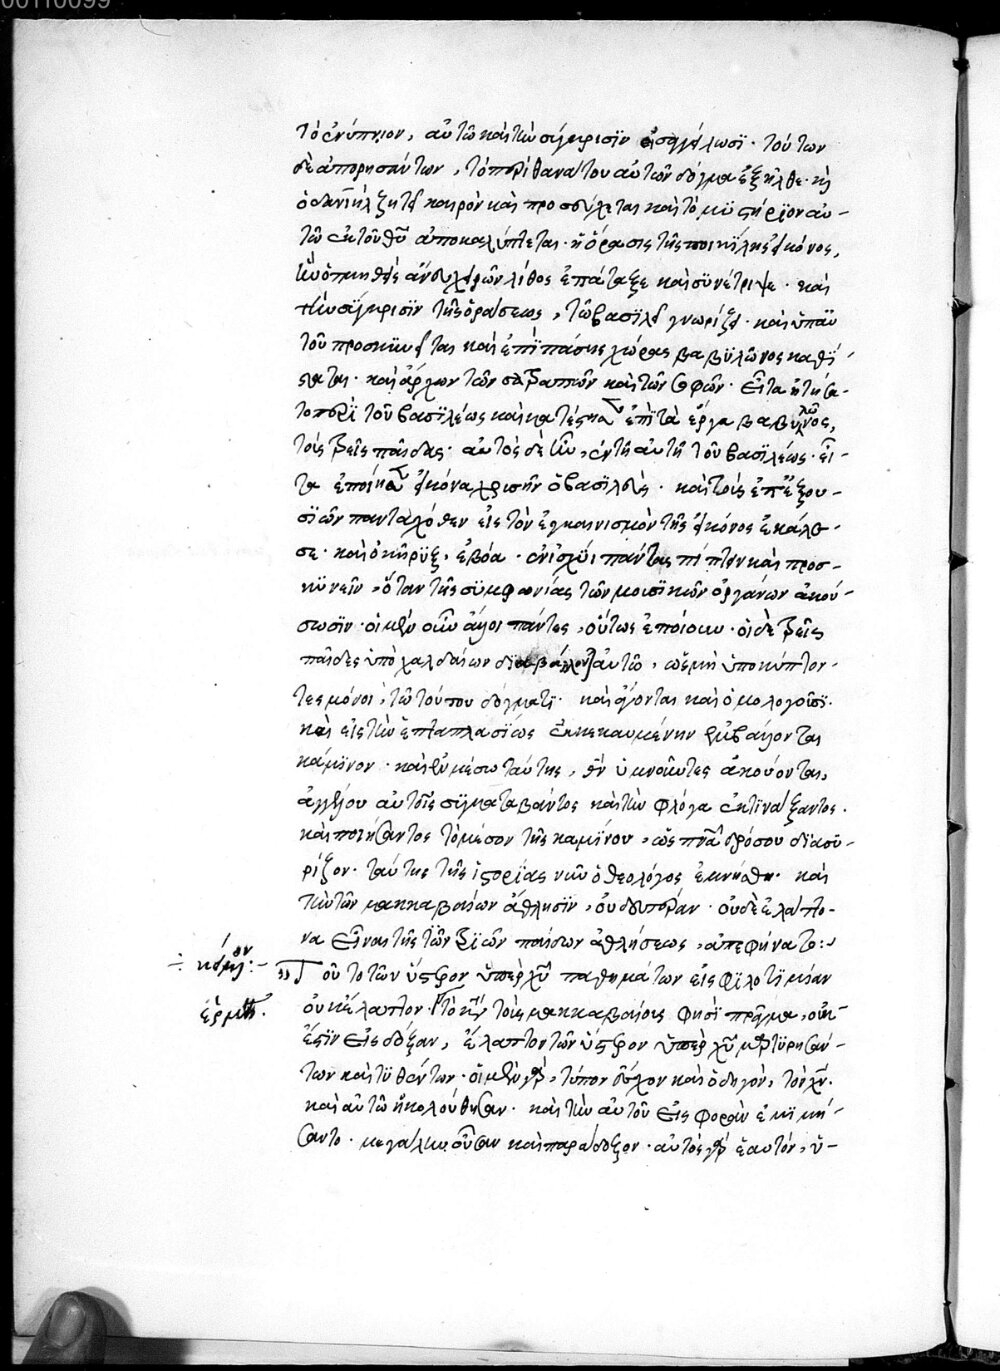 00110099
τὸ ἐνύπνιον, αὐτῶ καὶ τὴν σύγκρισϊν εἰσαγγέλωσϊ· τούτων
δὲ ἀπορησάντων, τὸ περὶ θανάτου αὐτῶν δόγμα ἐξῆλθε· καὶ
ὁ δανιὴλ ζητεῖ καιρὸν καὶ προσεύχεται καὶ τὸ μϋστήριον αὐ-
τῶ ἐκ τοῦ θῦ ἀποκαλύπτεται· ἡ ὅρασις τῆς ποικίλης εἰκόνος,
ἣν ὁ τμηθεὶς ἄνευ χειρῶν λίθος ἐπάταξε καὶ σϋνέτριψε· καὶ
τὴν σύγκρισϊν τῆς ὁράσεως, τῶ βασϊλεῖ γνωρίζει· καὶ ὑπ' αὐ
τοῦ προσκυνεῖται καὶ ἐπὶ πάσης χώρας βαβϋλῶνος καθί-
σταται· καὶ ἄρχων τῶν σατραπῶν καὶ τῶν σοφῶν· εἶτα ἠτήσα-
το περὶ τοῦ βασιλέως καὶ κατέστησεν ἐπὶ τὰ ἔργα βαβυλῶνος,
τοὺς τρεῖς παῖδας· αὐτὸς δὲ ἦν, ἐν τῇ αὐλῇ τοῦ βασϊλέως· εἶ-
τα ἐποίησεν εἰκόνα χρυσῆν ὁ βασϊλεὺς· καὶ τοὺς ἐπ' ἐξου-
σϊῶν πανταχόθεν εἰς τὸν ἐγκαινισμὸν τῆς εἰκόνος ἐκάλε-
σε· καὶ ὁ κῆρϋξ, ἐβόα· ἐν ἰσχύϊ πάντας πίπτειν καὶ προσ-
κϋνεῖν, ὅταν τῆς σϋμφωνίας τῶν μουσϊκῶν ὀργάνων ἀκού-
σωσϊν· οἱ μὲν οὖν ἄλλοι πάντες, οὕτως ἐποίουν· οἱ δὲ τρεῖς
παῖδες ὑπὸ χαλδαίων διαβάλλονται αὐτῶ, ὡς μὴ ὑποκύπτον-
τες μόνοι, τῶ τούτου δόγματι· καὶ ἄγονται καὶ ὁμολογοῦσϊ·
καὶ εἰς τὴν ἑπταπλασϊως ἐκκεκαυμένην ἐμβάλλονται
κάμϊνον· καὶ ἐν μέσω ταύτης, θν ὑμνοῦντες ἀκούονται,
ἀγγέλου αὐτοῖς συγκαταβάντος καὶ τὴν φλόγα ἐκτϊνάξαντος.
καὶ ποιήσαντος τὸ μέσον τῆς καμίνου, ὡς πνα δρόσου διασυ-
ρίζον· ταύτης τῆς ἱστορίας νῦν ὁ θεολόγος ἐμνήσθη· καὶ
τὴν τῶν μακκαβαίων ἄθλησϊν, οὐ δευτέραν· οὐδὲ ἐλάττο-
να εἶναι τῆς τῶν τριῶν παίδων ἀθλήσεως, ἀπεφήνατο:
Τοῦτο τῶν ὕστερον ὑπὲρ χῦ παθημάτων εἰς φϊλοτϊμίαν
οὐκ ἔλαττον· τὸ ἐν τοῖς μακκαβαίοις φησὶ πρᾶγμα, οὐκ
ἔστιν εἰς δόξαν, ἔλαττον τῶν ὕστερον ὑπὲρ χῦ μαρτϋρησάν-
των καὶ τϋθέντων· οἱ μὲν γὰρ, τύπον εἶχον καὶ ὁδηγὸν, τὸν χν·
καὶ αὐτῶ ἠκολούθησαν· καὶ τὴν αὐτοῦ εἰσφορὰν ἐμϊμή-
σαντο· μεγάλην οὖσαν καὶ παράδοξον· αὐτὸς γὰρ ἑαυτόν, ὑ-
÷ κείμενον:-
ἑρμη.